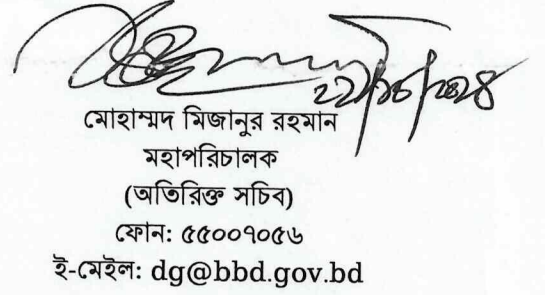 মোহাম্মদ মিজানুর রহমান
মহাপরিচালক
(অতিরিক্ত সচিব)
ফোন: ৫৫০০৭০৫৬
ই-মেইল: dg@bbd.gov.bd